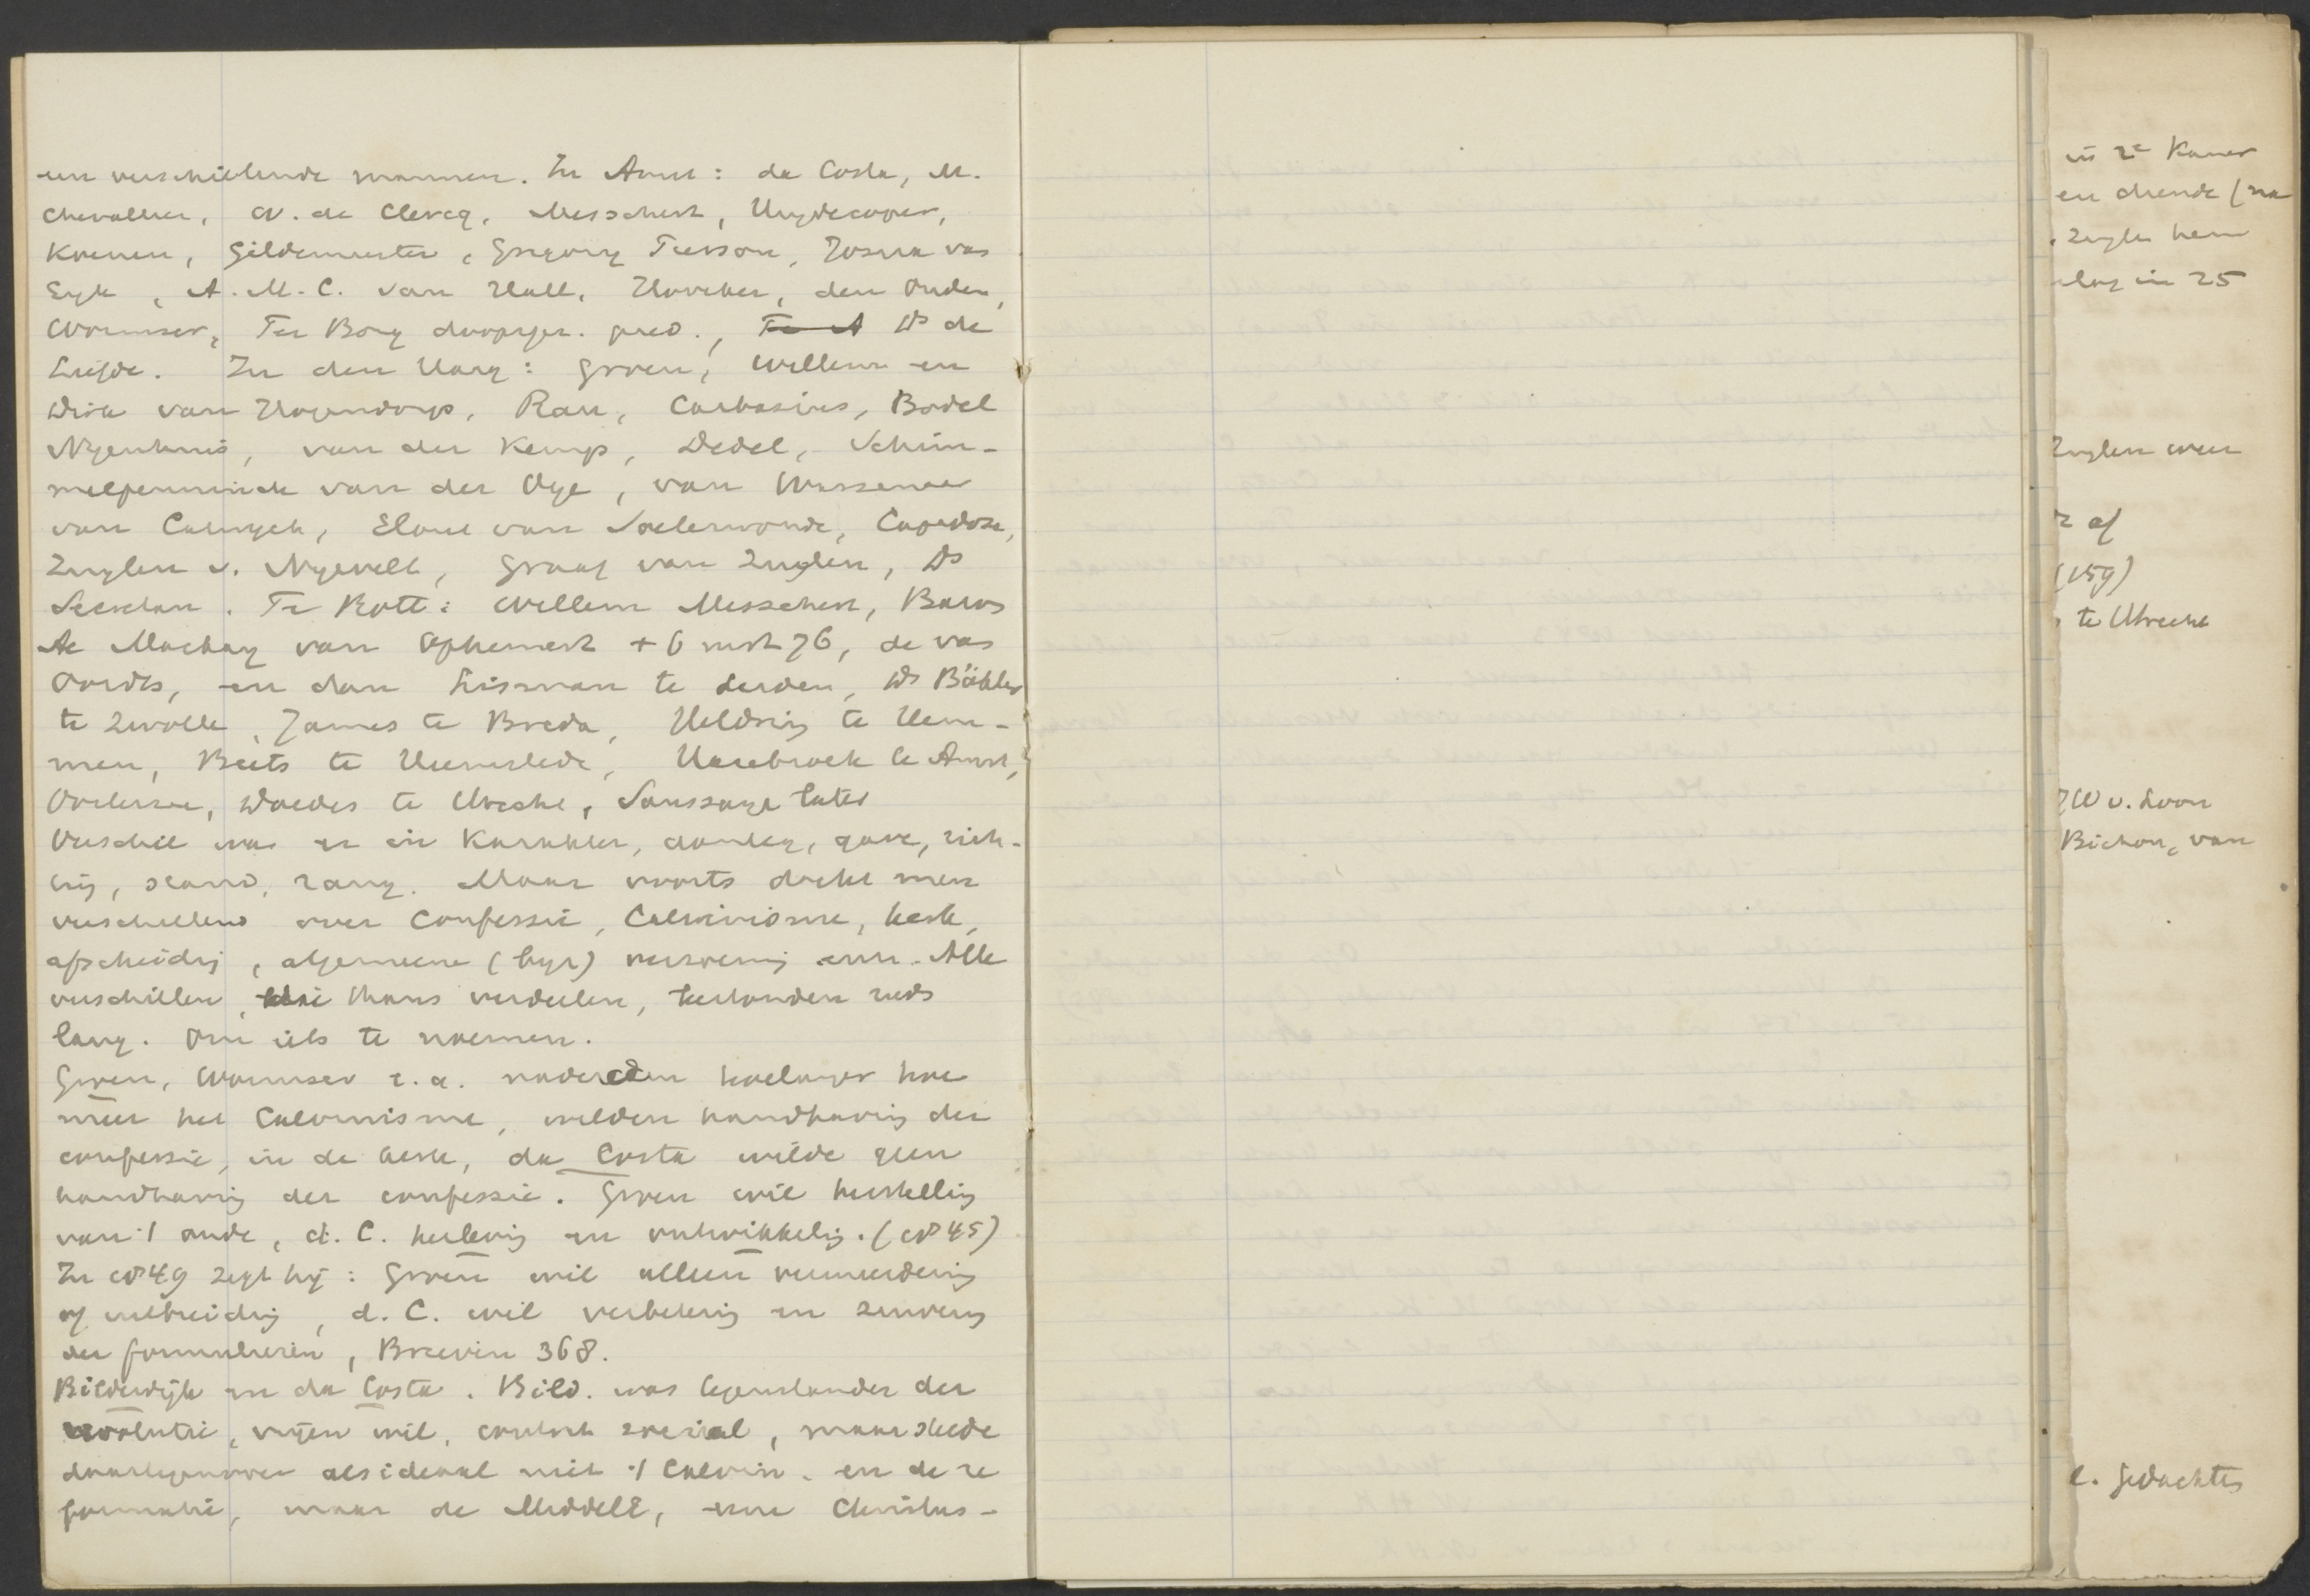 en verschillende mannen. In Amst: da Costa, M.
Chevallier, W. de Clercq, Messchert, Huydecoper,
Koenen, Gildemeester, Gregory Pierson, Josua van
Eyk, A.M.C. van Hall, Hoveker, den Ouden,
Wormser, Ter Borg doopsgez. pred., Ds de
Liefde. In den Haag: Groen, Willem en
Dirk van Hogendorp, Rau, Carbasius, Bodel
Nyenhuis, van der Kemp, Dedel, Schim-
melpenninck van der Oye, van Wassenaer
van Catwyck, Elout van Soeterwoude, Capadose,
Zuylen v. Nyevelt, Graaf van Zuylen, Ds
Secretan. Te Rott: Willem Messchert, Baron
Ae Mackay van Ophemert + 6 mrt 76, de van
Oordts, en dan Lisman te Leiden, Ds Bähler
te Zwolle, James te Breda, Heldring te Hem-
men, Beets te Heemstede, Hasebroek te Amst,
Oosterzee, Doedes te Utrecht, Saussaye later
Verschil was er in karakter, aanleg, gave, rich-
ting, stand, rang. Maar voorts dacht men
verschillend over Confessie, Calvinisme, kerk,
afscheiding, algemeene (byz) verzoening enz. Alle
verschillen, die thans verdeelen, bestonden reeds
lang. Om iets te noemen.
Groen, Wormser e.a. naderden hoelanger hoe
meer het Calvinisme, wilden handhaving der
confessie, in de kerk, da Costa wilde geen
handhaving der confessie. Groen wil herstelling
van 't oude, d. C. herleving en ontwikkeling. (co 45)
In co 49 zegt hij: Groen wil alleen vermeerdering
of uitbreiding, d. C. wil verbetering en zuivering
der formulieren, Brieven 368.
Bilderdijk en da Costa. Bild. was tegenstander der
revolutie, vrijen wil, contract sociaal, maar stelde
daartegenover als ideaal niet 't Calvin. en de re
formatie, maar de MiddelE, eene Christus-
in 2e Kamer
en diende (na
Zuylen hem
in 25
Zuylen weer
af
(159)
te Utrecht
JW v. Loon
Bichon, van
l. Gedachten